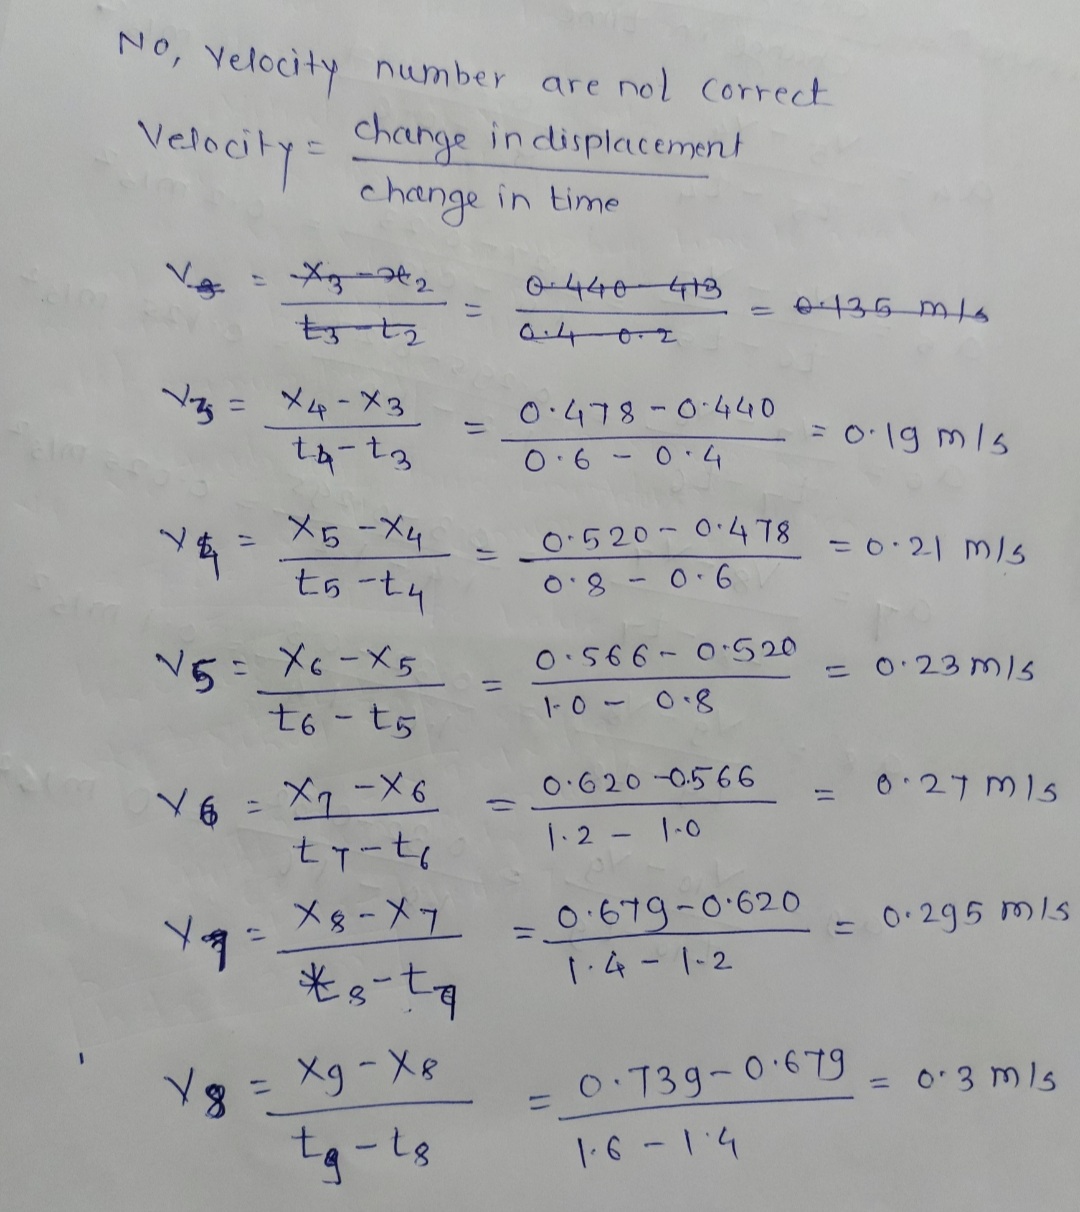 No, Velocity number are not correct
Velocity = change in displacement / change in time
V3 = X3 - x2 / t3 - t2 = 0.440 - 413 / 0.4 - 0.2 = 0.135 m/s
V3 = X4 - X3 / t4 - t3 = 0.478 - 0.440 / 0.6 - 0.4 = 0.19 m/s
V4 = X5 - X4 / t5 - t4 = 0.520 - 0.478 / 0.8 - 0.6 = 0.21 m/s
V5 = X6 - X5 / t6 - t5 = 0.566 - 0.520 / 1.0 - 0.8 = 0.23 m/s
V6 = X7 - X6 / t7 - t6 = 0.620 - 0.566 / 1.2 - 1.0 = 0.27 m/s
V7 = X8 - X7 / t8 - t7 = 0.679 - 0.620 / 1.4 - 1.2 = 0.295 m/s
V8 = X9 - X8 / t9 - t8 = 0.739 - 0.679 / 1.6 - 1.4 = 0.3 m/s